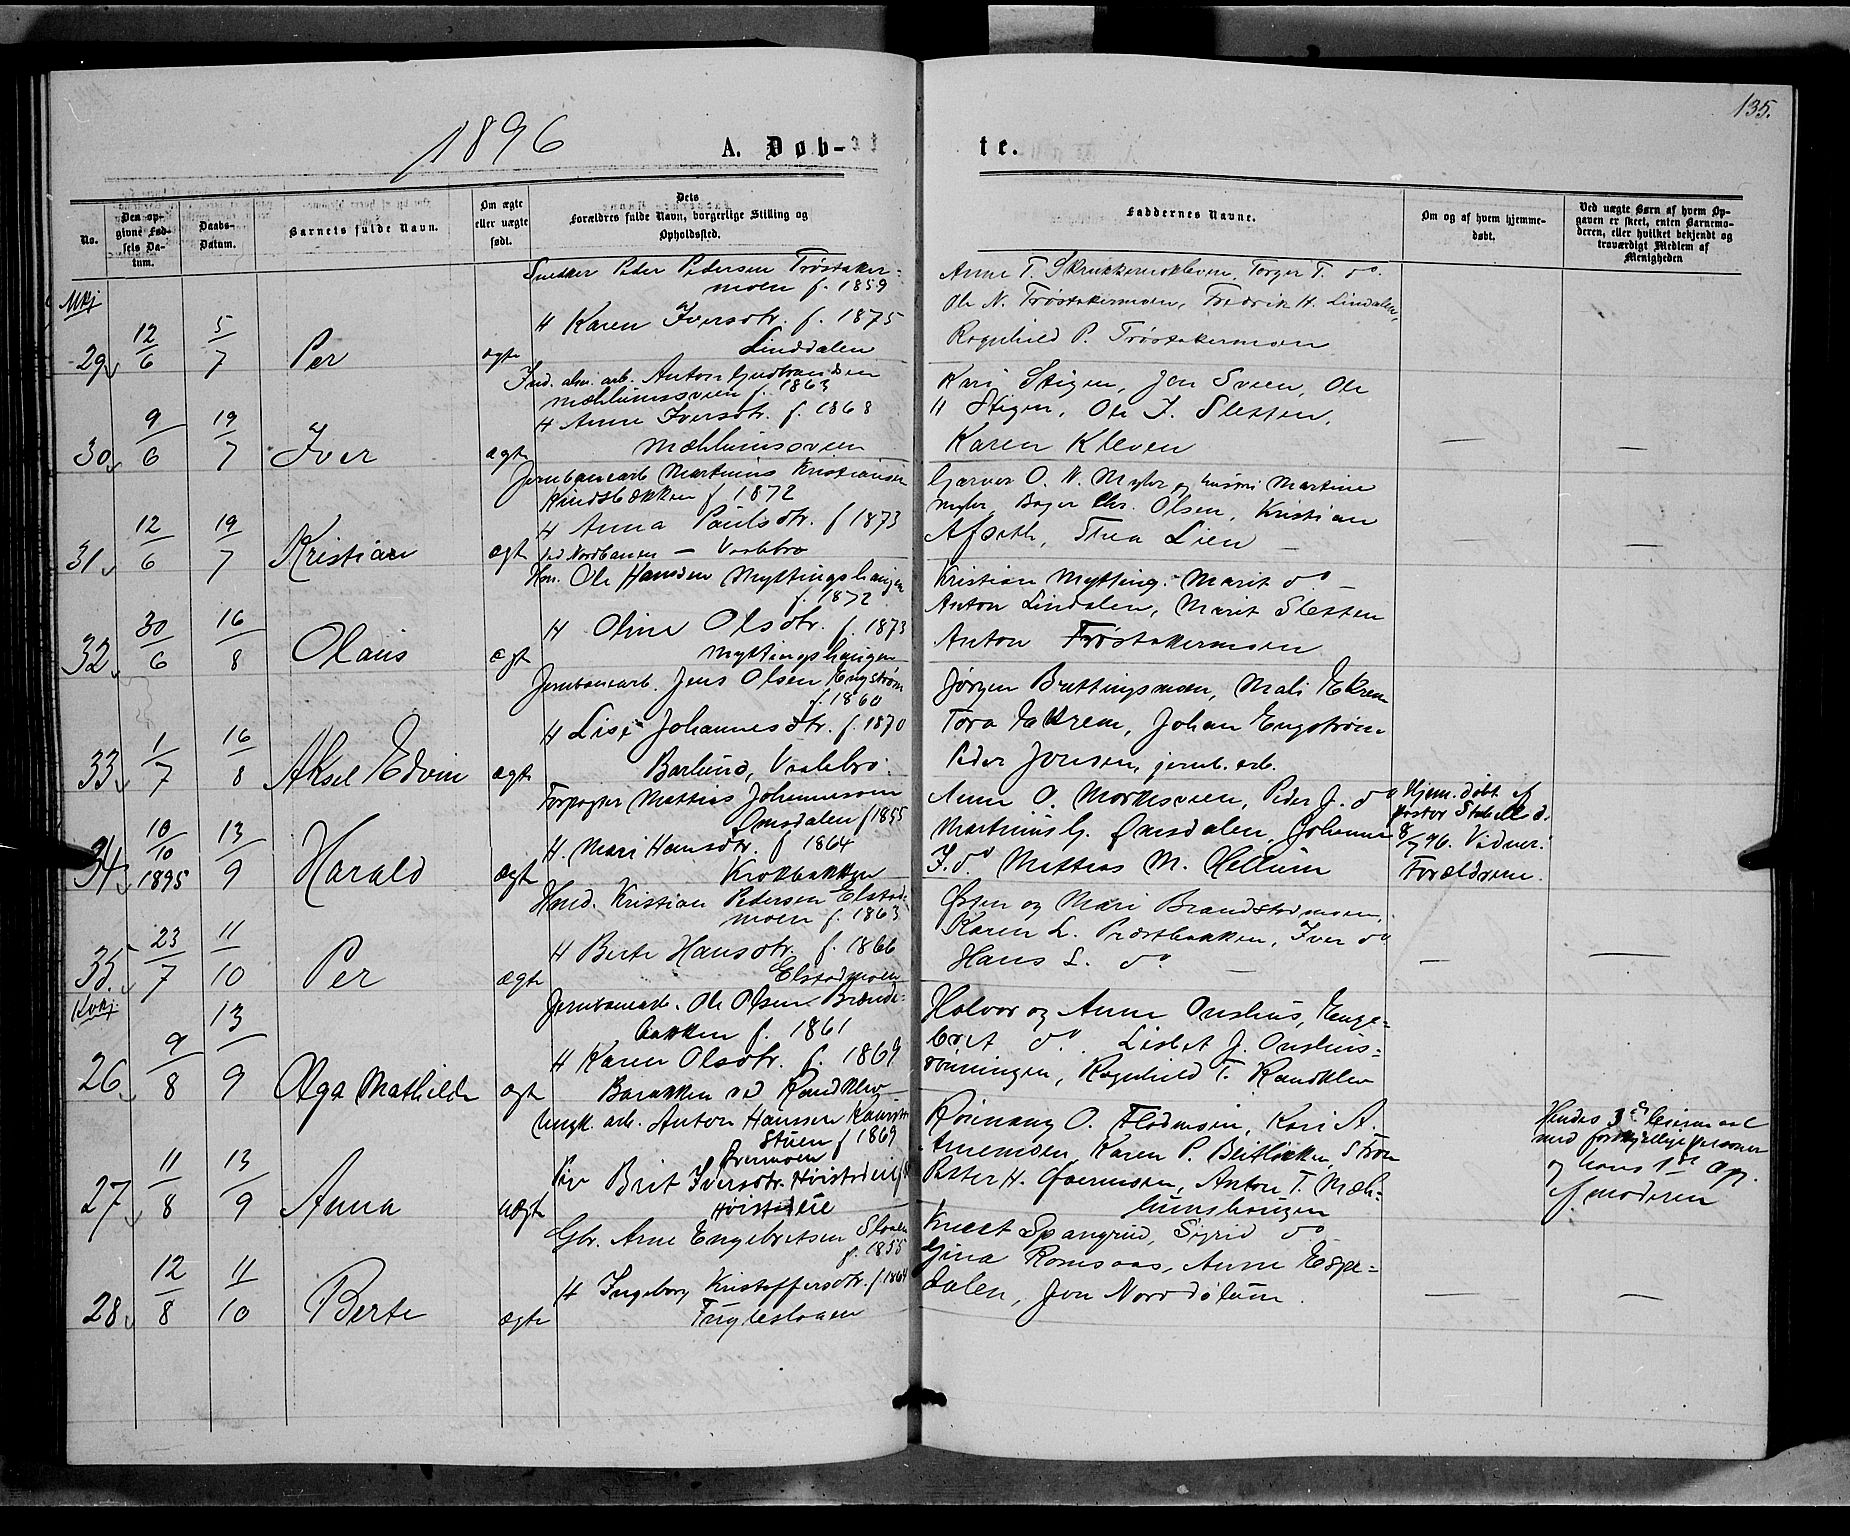 135.
1896
A. Døb-
te.
No.
Den op-
givne Fød-
sels Da-
tum.
Daabs-
Datum.
Barnets fulde Navn.
Om ægte
eller uægte
født.
Dets
Forældres fulde Navn, borgerlige Stilling og
Opholdssted.
Faddernes Navne.
Om og af hvem hjemme-
døbt.
Ved uægte Børn af hvem Op-
gaven er skeet, enten Barnemo-
deren, eller hvilket bekjendt og
troværdigt Medlem af
Menigheden
Mkj
29 12/6 5/7 Per ægte
Snedker Peder Pedersen Trøstaker-
moen f. 1859
H Karen Iversdtr. f. 1875
Linddalen
Anne T. Skrukkemokleven, Torger T. do.
Ole N. Trøstakermoen, Fredrik H. Lindalen,
Ragnhild P. Trøstakermoen
30 9/6 19/7 Iver ægte
Ind. alm. arb. Anton Gudbrandsen
Mæhlumssveen f. 1863
H Anne Iversdtr. f. 1868
Mæhlumssveen
Kari Stigen, Jon Sveen, Ole
H Stigen, Ole J. Sletten,
Karen Kleven
—
—
31 12/6 19/7 Kristian ægt
Jernbanearb Martinus Kristiansen
Kindsbækken f 1872
H Anna Paulsdtr. f 1873
ved Nordbanen — Vaalebro
Garver O. N. Myhr og hustru Martine
Myhr, Bager Chr. Olsen, Kristian
Afseth, Thea Lien —
—
—
32 30/6 16/8 Olaus ægt
Hm. Ole Hansen Myttingshaugen
f. 1872
H Oline Olsdtr. f. 1873
Myttingshaugen
Kristian Mytting. Marit do —
Anton Lindalen, Marit Sletten
Anton Trøstakermoen
33 1/7 16/8 Aksel Edvin ægte
Jernbanearb. Jens Olsen Engstrøm
f. 1860
H Lise Johannesdtr. f. 1870
Barlund, Vaalebro.
Jørgen Bruttingsmoen, Mali Ekrem
Tora Ekrem, Johan Engstrøm
Peder Jonsen, jernb. arb.
34 10/10 1895 13/9 Harald ægt
Forpagter Mattias Johannessen
Onsdalen f 1855
H. Mari Hansdtr. f 1864
Krokbakken
Anne O. Morksveen, Peder J. do
Martinus G. Onsdalen, Johanne
J. do Mattias M. Hellum
Hjem. døbt af
pastor Stabell d.
8/7 96. Vidner:
Forældrene.
35. 23/7 11/10 Per ægte
Hmd. Kristian Pedersen Elstad-
moen f. 1863
H Berte Hansdtr. f. 1866
Elstadmoen
Østen og Mari Brandstadmoen,
Karen L. Præstbakken, Iver do
Hans L. do —
—
—
Kvkj
26 9/8 13/9 Olga Mathilde ægt
Jernbanearb. Ole Olsen Brænde-
bakken f. 1861
H Karen Olsdtr. f. 1869
Barakken ved Randklev
Halvor og Anne Onshus, Enge-
bret do. Lisbet J. Onshus-
rønningen, Ragnhild T. Randklev
27 11/8 13/9 Anna uægte
Ungk. arb. Anton Hanssen
Stuen f 1869
Øvermoen
Pige Brit Iversdtr. Høistadeie
Høistadeie
O. Flodmoen, Kari A.
Karen P. Beitlikken,
Petter H. Øvermoen, Anton T. Mæh-
lumshaugen
Hendes 3die leiermaal
med forskjellige personer
og hans 1ste Opg.
af moderen
28 12/8 11/10 Berte ægte
Gbr. Arne Engebretsen Sloen
f. 1855
H Ingeborg Kristoffersdtr. f 1864
Fuglesloen
Knut Spangrud, Sigrid do
Gina Romsaas, Anne Espe-
dalen, Jon Norddølum.
—
—